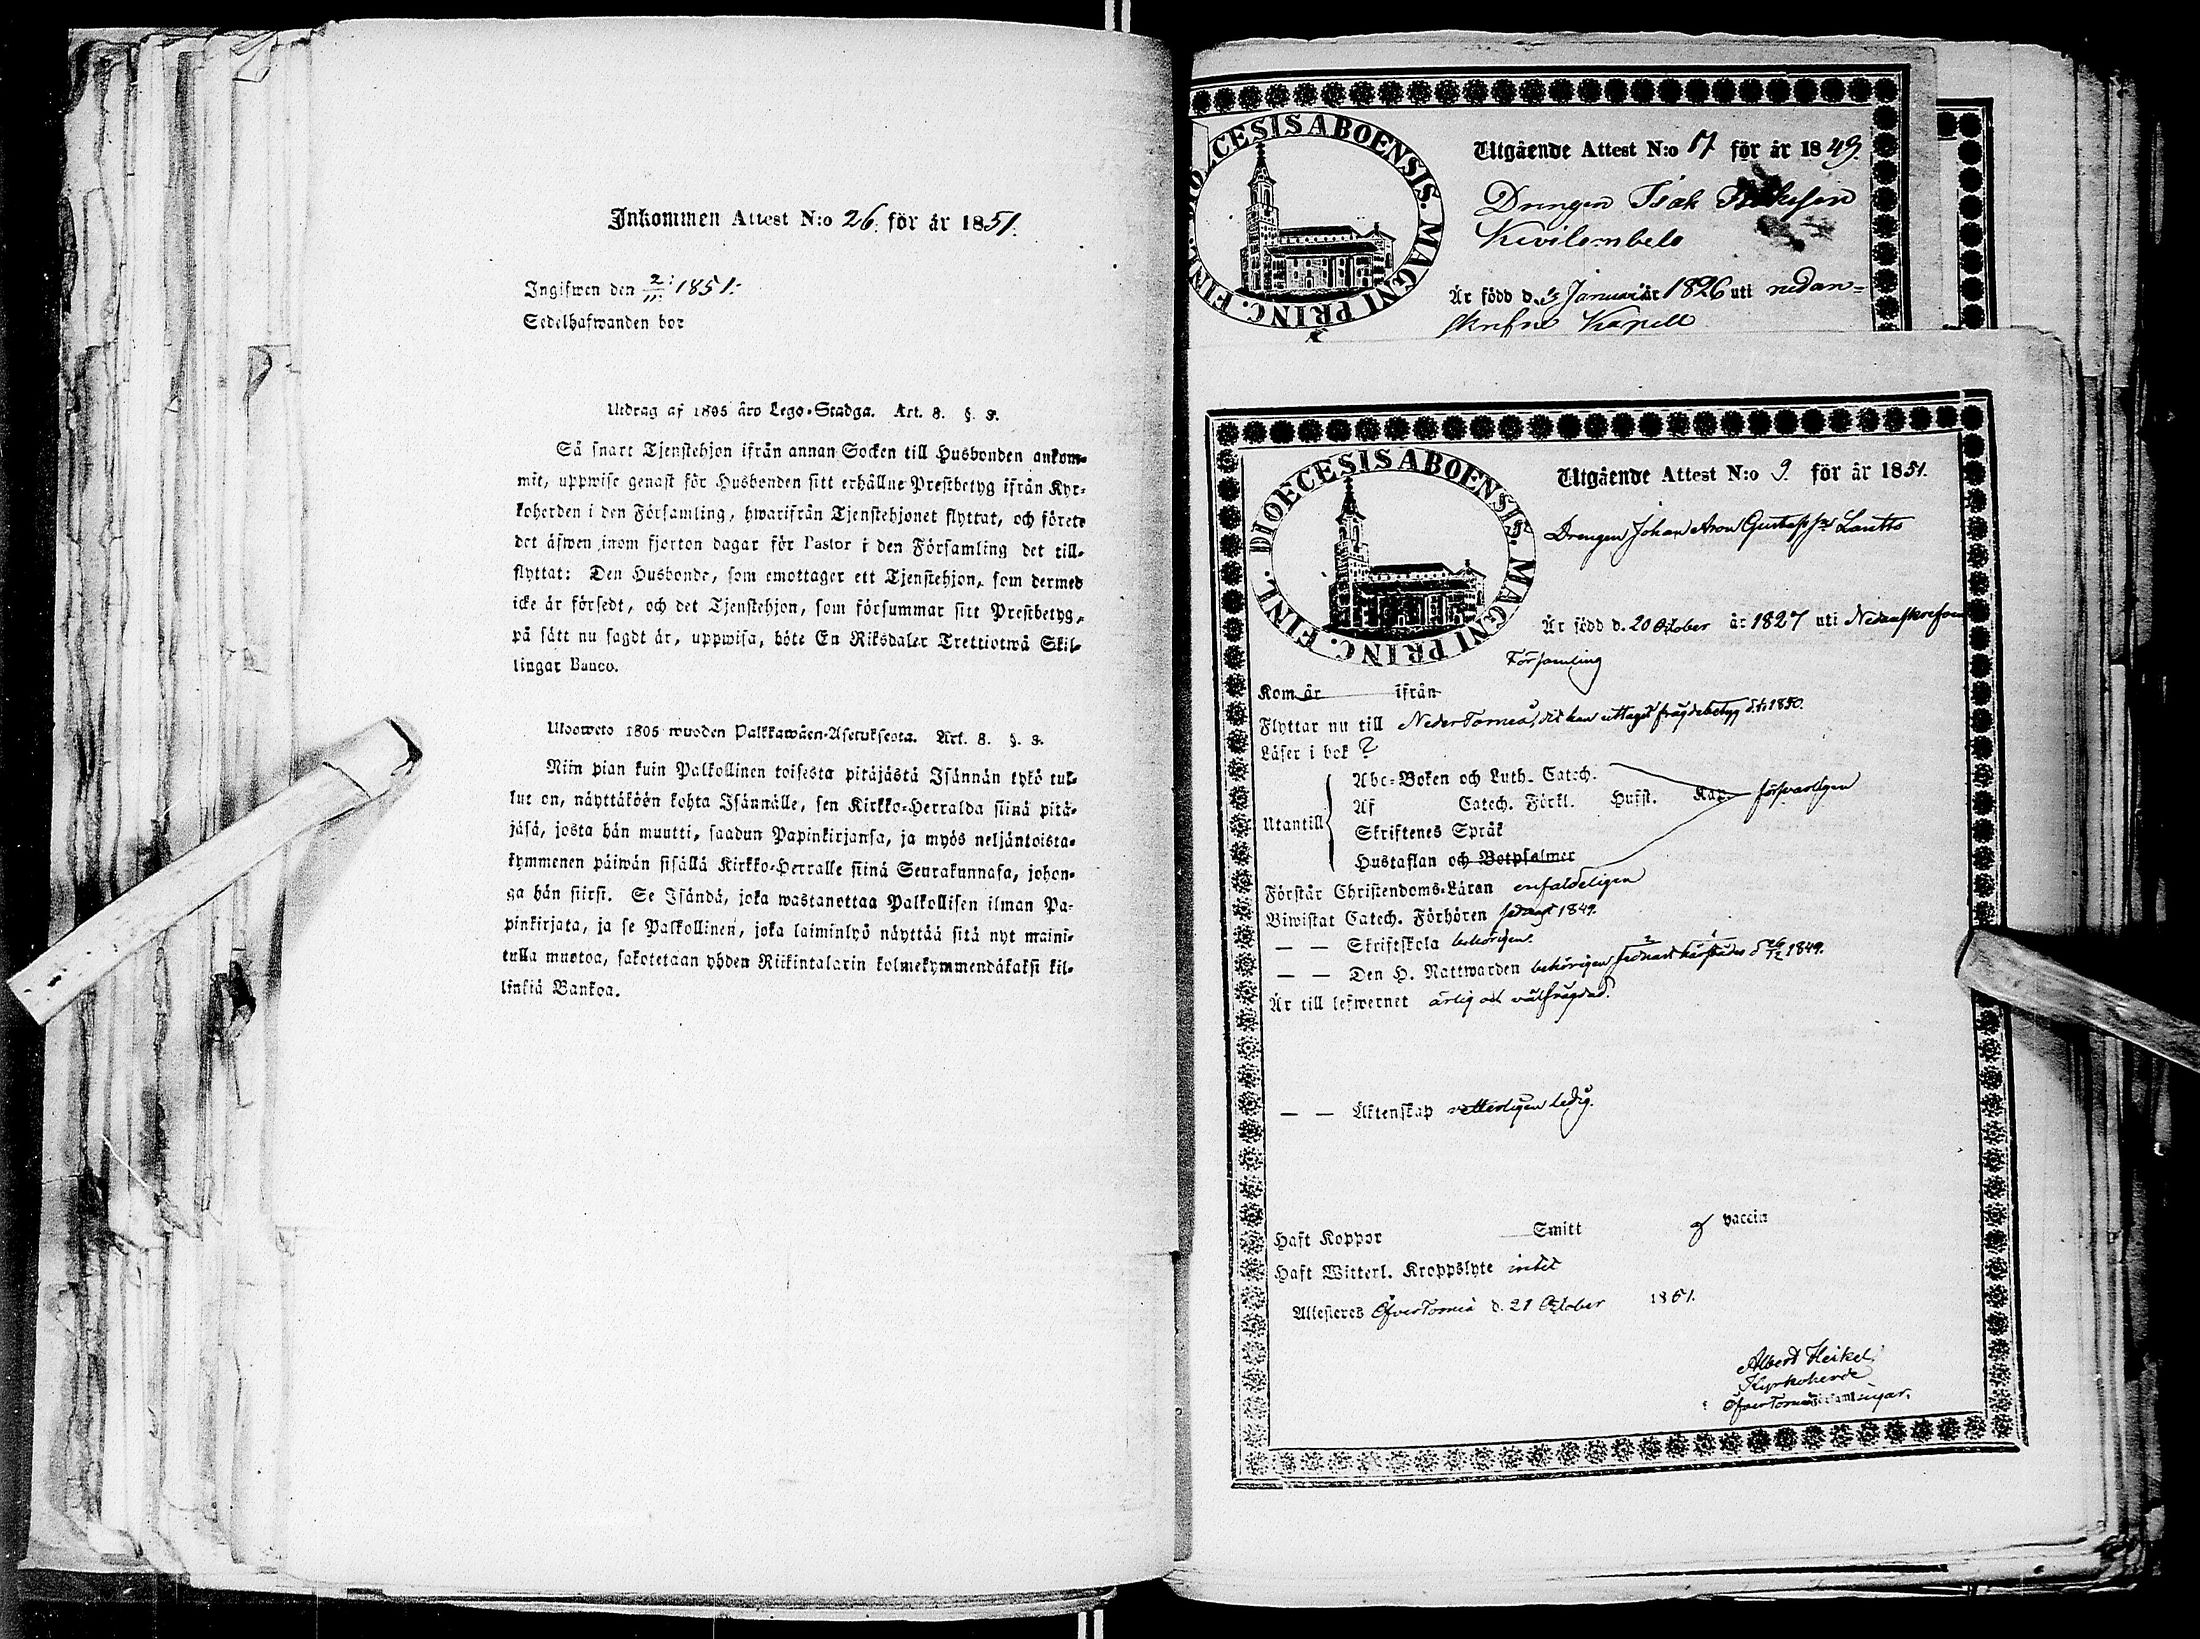 Inkommen Attest N:o 26. för år 1851.
Ingifwen den 2/11 1851.
Sedelhafwanden bor
Utdrag af 1805 års Lego-Stadga. Art. 8. §. 3.
Så snart Tjenstehjon ifrån annan Socken till Husbonden ankom-
mit, uppwise genast för Husbonden sitt erhållne Prestbetyg ifrån Kyr-
koherden i den Församling, hwarifrån Tjenstehjonet flyttat, och förete
det äfwen inom fjorton dagar för Pastor i den Församling det till-
flyttat: Den Husbonde, som emottager ett Tjenstehjon, som dermed
icke är försedt, och det Tjenstehjon, som försummar sitt Prestbetyg,
på sätt nu sagdt är, uppwisa, böte En Riksdaler Trettiotwå Skil-
lingar Banco.
Ulosweto 1805 wuoden Palkkawäen-Asetuksesta. Art. 8. §. 3.
Niin pian kuin Palkollinen toisesta pitäjästä Isännän tykö tul-
lut on, näyttäköön kohta Isännälle, sen Kirkko-Herralda siinä pitä-
jäsä, josta hän muutti, saadun Papinkirjansa, ja myös neljäntoista-
kymmenen päiwän sisällä Kirkko-Herralle siinä Seurakunnasa, johon-
ga hän siirsi. Se Isändä, joka wastanottaa Palkollisen ilman Pa-
pinkirjata, ja se Palkollinen, joka laiminlyö näyttää sitä nyt maini-
tulla muotoa, sakotetaan yhden Riikintalarin kolmekymmendäkaksi kil-
linkiä Bankoa.
DIOECESIS ABOENSIS. MAGNI PRINC. FINL.
Utgående Attest N:o 17 för år 1849.
Drengen Isak
Är född d. Januari år 1826 uti nedan-
skrefne Kapell
DIOECESIS ABOENSIS. MAGNI PRINC. FINL.
Utgående Attest N:o 9. för år 1851.
Drengen Johan Aron Gustafss:n Lantto
Är född d. 20 October år 1827 uti Nedanskrefne
Församling
Kom år ifrån
Flyttar nu till Neder Torneå, dit han uttagit frägdebetyg 1850.
Läser i bok ?
Utantill
Abc-Boken och Luth. Catech.
Af Catech. Förkl. Hufst. Kap. försvarligen
Skriftenes Språk
Hustaflan och Botpsalmer
Förstår Christendoms-Läran enfaldeligen
Biwistat Catech. Förhören sednast 1849.
— — Skriftskola behörigen.
— — Den H. Nattwarden behörigen, sednast härstädes d 26/12 1849.
Är till lefwernet ärlig och välfrägdad.
— — Äktenskap vetterligen ledig.
Haft Koppor Smitt vaccin
Haft Witterl. Kroppslyte intet
Attesteras ÖfverTorneå d. 21 October 1851.
Albert Heikel
Kyrkoherde
ÖfverTorneå Församlingar.